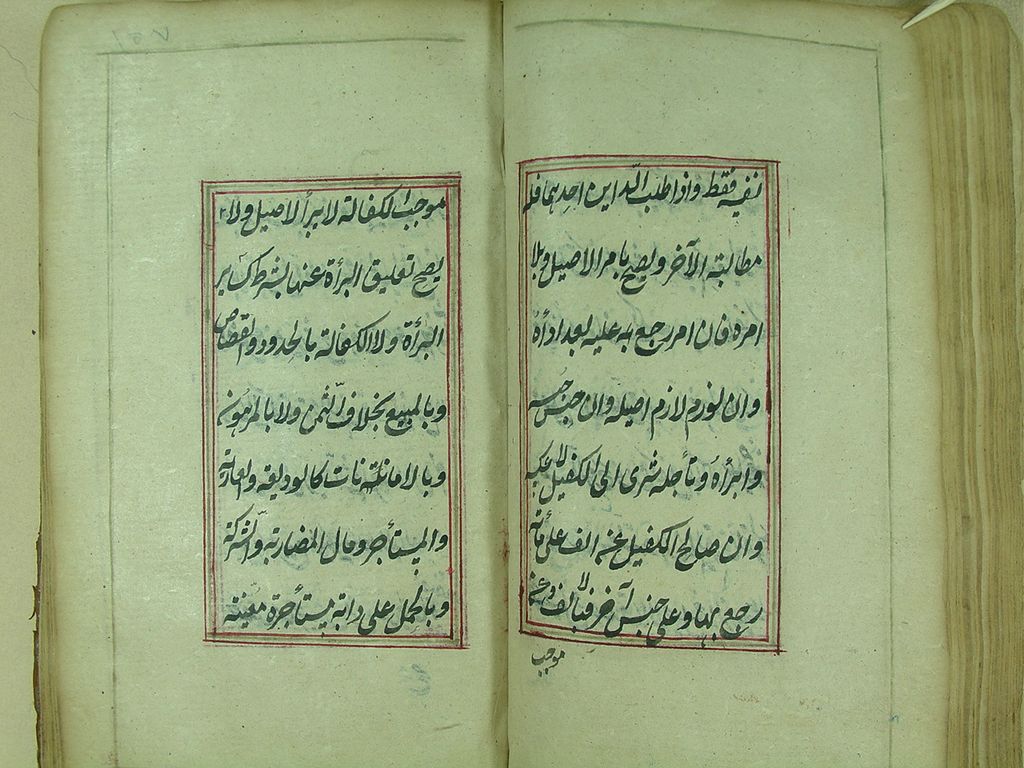 نفيه فقط واذا طلب الداين احدهما فله
مطالبة الآخر ويصح بامر الاصيل وبلا
امره فان امر رجع به عليه بعد ادائه
وان لوزم لازم اصيله وان حبس حبسه
وابرأه وتأجله سرى الى الكفيل لا عكسه
وان صالح الكفيل عنه الف على مأئة
رجع بها وعلى جنس آخر فبالف وعن
موجب
موجب الكفالة لا يبرأ الاصيل ولا
يصح تعليق البرأة عنها بشرط كساير
البرأة ولا الكفالة بالحدود والقصاص
وبالمبيع بخلاف الثمن ولا بالمرهون
وبالامانات كالوديعة والعارية
والمستأجر ومال المضاربة والشركة
وبالحمل على دابة مستأجرة معينة